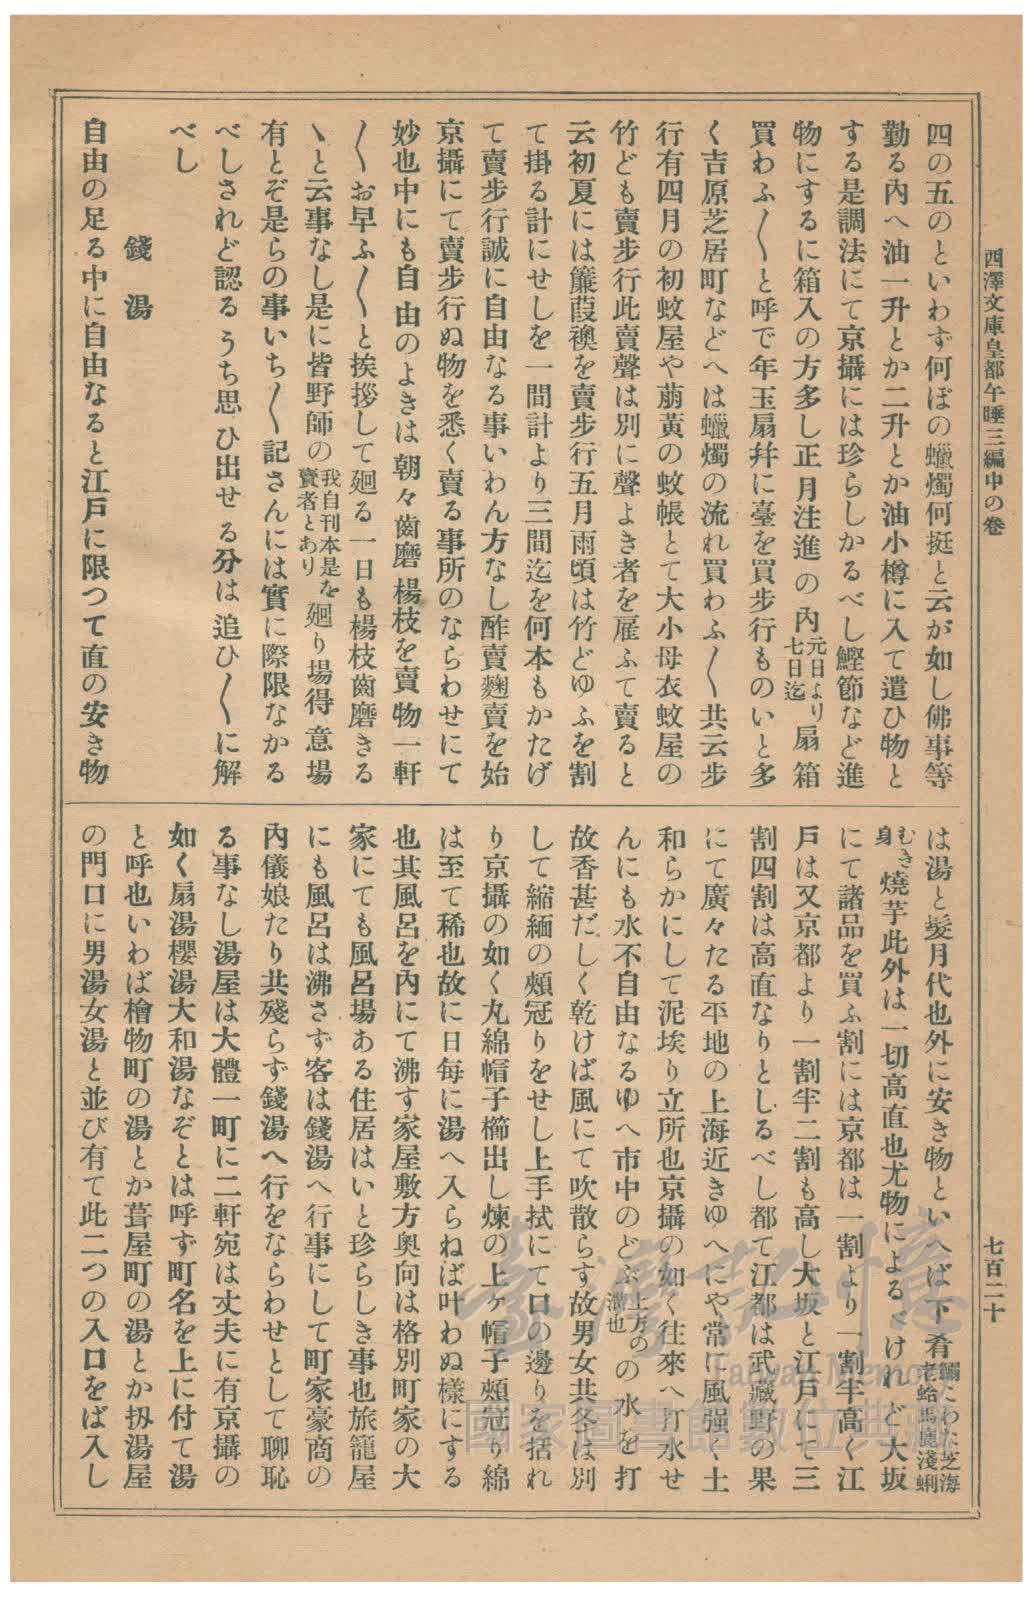 西澤文庫皇都午睡三編中の卷
七百二十
四の五のといわず何ぼの蠟燭何挺と云が如し佛事等
勤る內へ油一升とか二升とか油小樽に入て遣ひ物と
する是調法にて京攝には珍らしかるべし鰹節など進
物にするに箱入の方多し正月注進の內元日より七日迄扇箱
買わふ〱と呼で年玉扇幷に臺を買步行ものいと多
く吉原芝居町などへは蠟燭の流れ買わふ〱共云步
行有四月の初蚊屋や萠黃の蚊帳とて大小母衣蚊屋の
竹ども賣步行此賣聲は別に聲よき者を雇ふて賣ると
云初夏には簾葭襖を賣步行五月雨頃は竹どゆふを割
て掛る計にせしを一間計より三間迄を何本もかたげ
て賣步行誠に自由なる事いわん方なし酢賣麴賣を始
京攝にて賣步行ぬ物を悉く賣る事所のならわせにて
妙也中にも自由のよきは朝々齒磨楊枝を賣物一軒
〱お早ふ〱と挨拶して廻る一日も楊枝齒磨きる
ゝと云事なし是に皆野師の我自刊本是を賣者とあり廻り場得意場
有とぞ是らの事いち〱記さんには實に際限なかる
べしされど認るうち思ひ出せる分は追ひ〱に解
べし
錢湯
自由の足る中に自由なると江戶に限つて直の安き物
は湯と髮月代也外に安き物といへば下肴鰯こわた芝海老蛤馬鹿淺蜊
むき身燒芋此外は一切高直也尤物によるべけれど大坂
にて諸品を買ふ割には京都は一割より一割半高く江
戶は又京都より一割半二割も高し大坂と江戶にて三
割四割は高直なりとしるべし都て江都は武藏野の果
にて廣々たる平地の上海近きゆへにや常に風强く土
和らかにして泥埃り立所也京攝の如く往來へ打水せ
んにも水不自由なるゆへ市中のどぶ上方の溝也の水を打
故香甚だしく乾けば風にて吹散らす故男女共冬は別
して縮緬の頰冠りをせし上手拭にて口の邊りを括れ
り京攝の如く丸綿帽子櫛出し煉の上ヶ帽子頰冠り綿
は至て稀也故に日每に湯へ入らねば叶わぬ樣にする
也其風呂を內にて沸す家屋敷方奧向は格別町家の大
家にても風呂場ある住居はいと珍らしき事也旅籠屋
にも風呂は沸さず客は錢湯へ行事にして町家豪商の
內儀娘たり共殘らず錢湯へ行をならわせとして聊恥
る事なし湯屋は大體一町に二軒宛は丈夫に有京攝の
如く扇湯櫻湯大和湯なぞとは呼ず町名を上に付て湯
と呼也いわば檜物町の湯とか葺屋町の湯とか扨湯屋
の門口に男湯女湯と並び有て此二つの入口をば入し
臺灣記憶
Taiwan Memory
國家圖書館數位典藏